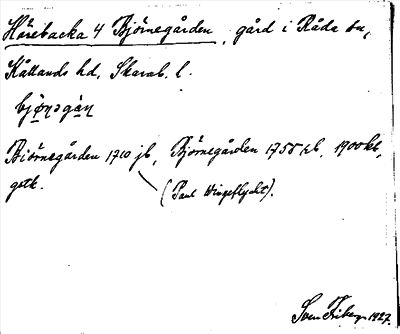 Härebacka 4 Björnegården, gård i Råda sn,
Kållands hd, Skarab. l.
bjö̱ɳəgàɳ
Biörnegården 1710 jb, Björnegården 1758 kb, 1900 kb,
getk.
(Paul Wingeflycht).
Sven Friberg 1927.